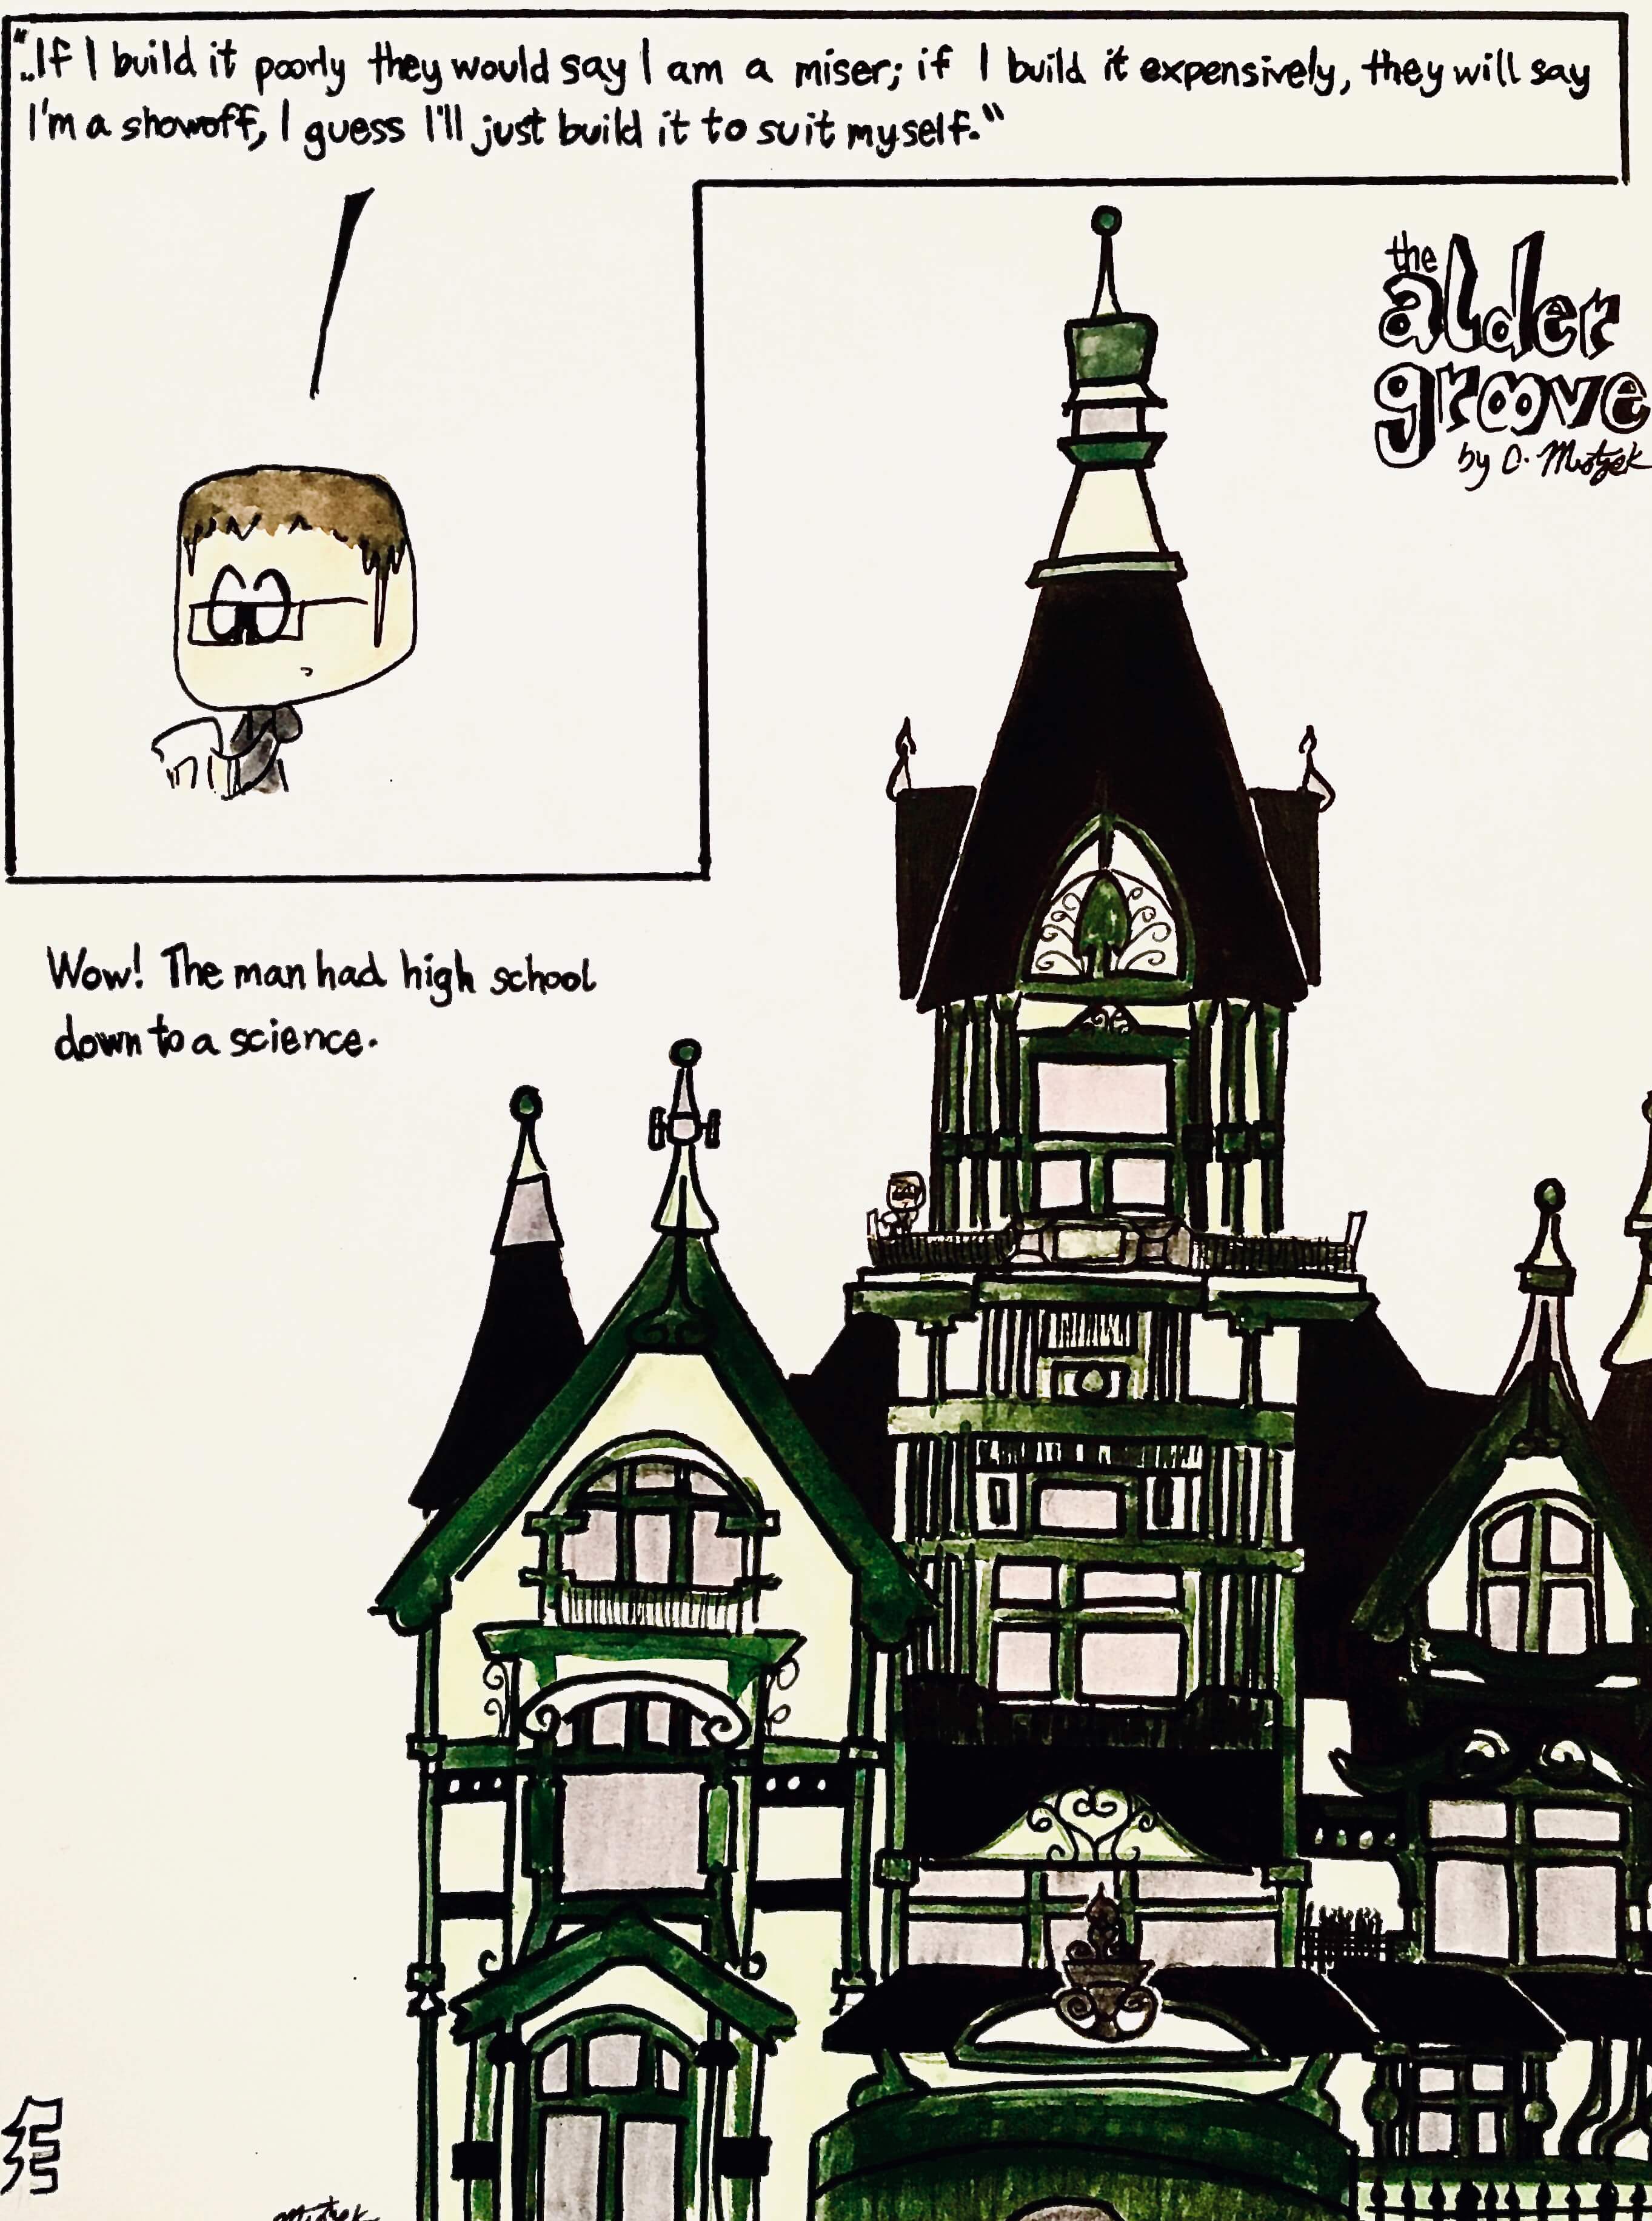 "..If I build it poorly they would say I am a miser; if I build it expensively, they will say
I'm a showoff, I guess I'll just build it to suit myself."
the
alder
groove
by C. Mrotzek
Wow! The man had high school
down to a science.